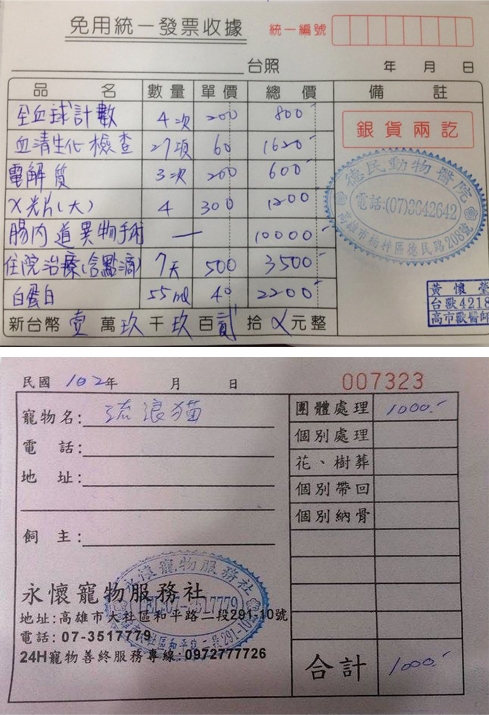 免用統一發票收據 統一編號
台照 年 月 日
品 名 數量 單價 總價 備 註
全血球計數 4次 200 800
血清生化檢查 27項 60 1620
電解質 3次 200 600
X光片(大) 4 300 1200
腸內道異物手術 — 10000
住院治療(含點滴) 7天 500 3500
白蛋白 55ml 40 2200
新台幣 壹 萬 玖 千 玖 百 貳 拾 元整
銀貨兩訖
德民動物醫院
電話:(07)3642642
高雄市楠梓區德民路206號
黃懷瑩
台獸4218
高市獸醫師
民國 102年 月 日 007323
寵物名: 流浪猫
電 話:
地 址:
飼 主:
團體處理 1000.-
個別處理
花、樹葬
個別帶回
個別納骨
合計 1000.-
永懷寵物服務社
TEL:07-3517779
永懷寵物服務社
地址:高雄市大社區和平路二段291-10號
電話: 07-3517779
24H寵物善終服務專線:0972777726